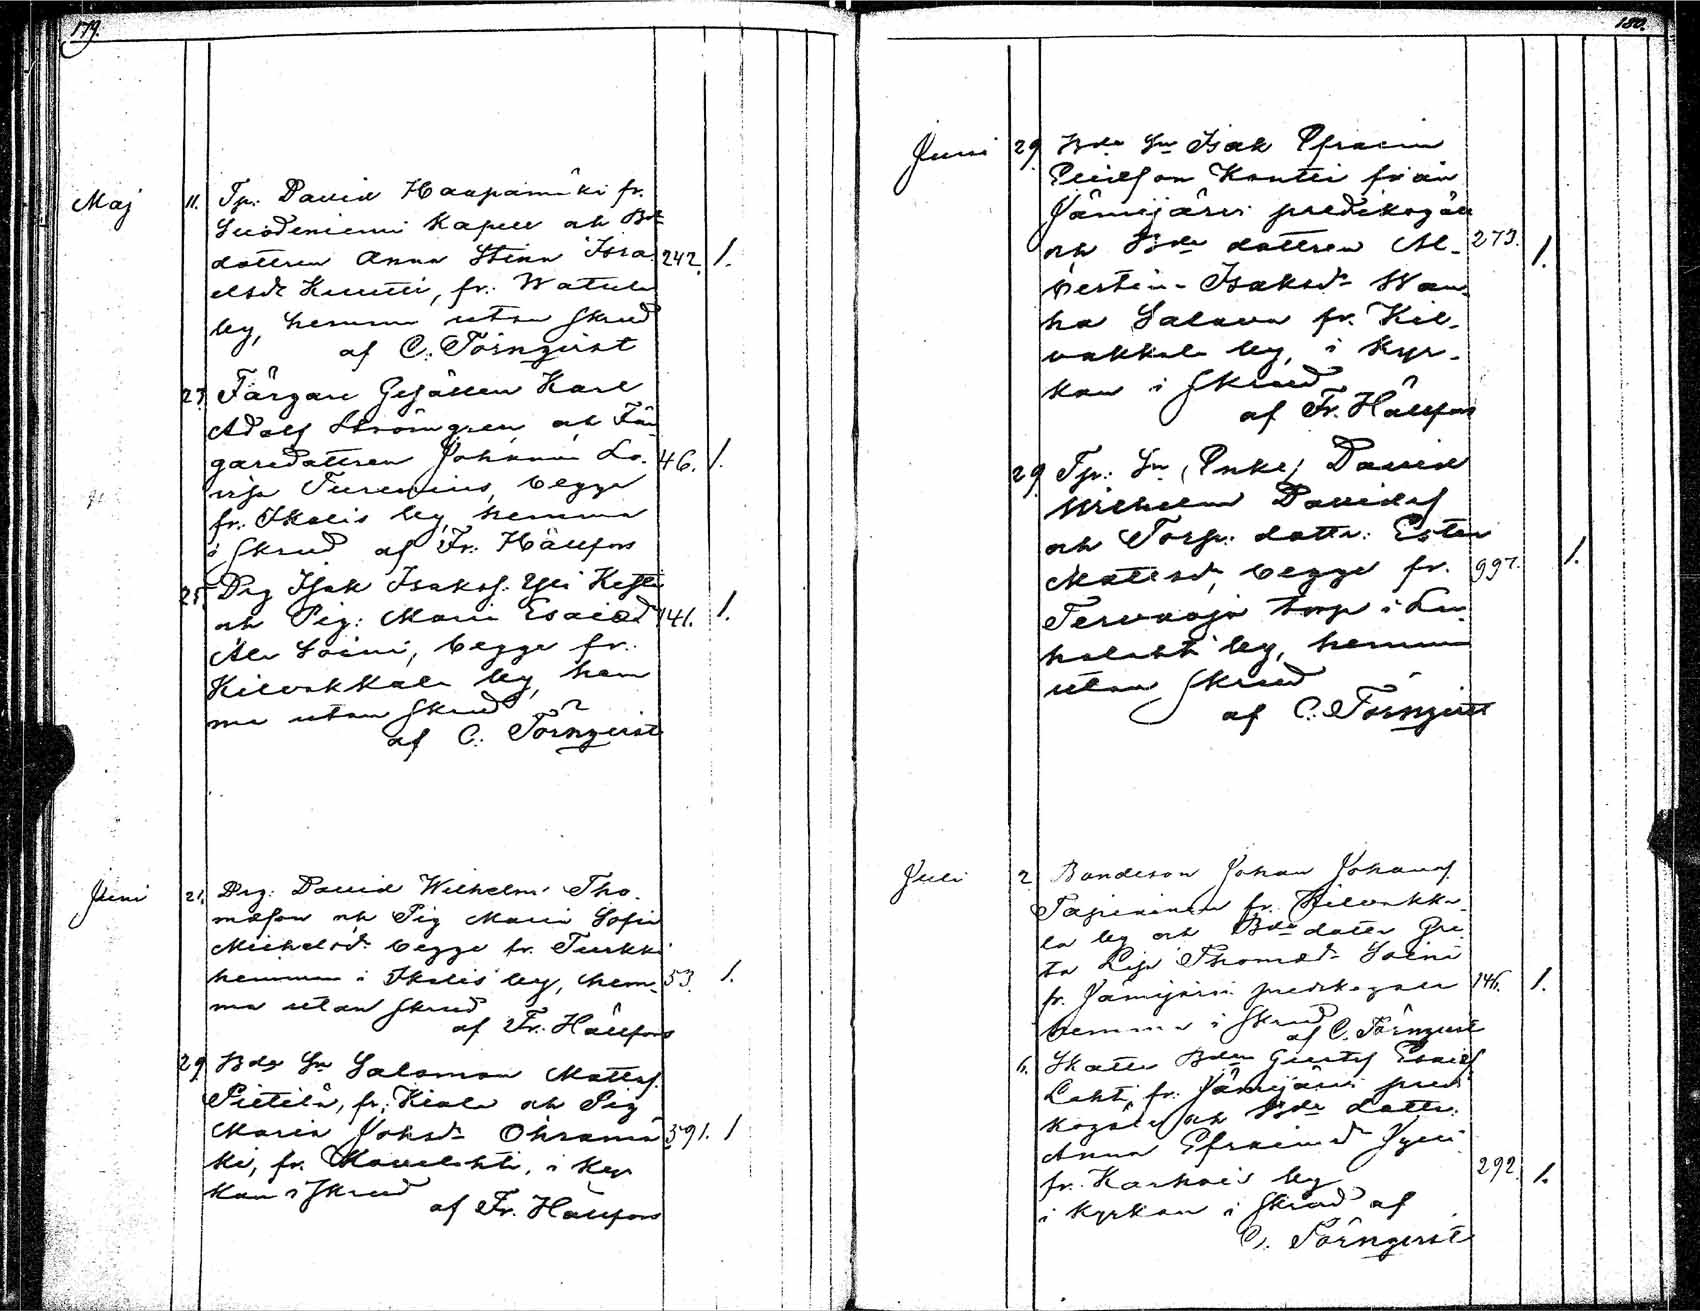 179.
Maj 11. Tp. David Haapamäki fr.
Suodeniemi Kapell och Bde
dottren Anna Stina Isra- 242. 1.
elsdr Knutti, fr. Watula
by, hemma utan skrud
af C. Törnqvist
27. Färgare Gesällen Karl
Adolf Strömgren och Fär-
garedottren Johanna Lo- 46. 1.
visa Turenius, begge
fr. Ikalis by, hemma
i skrud af Fr. Hällfors
28. Drg Isak Isaks. Yli Kesti
och Pig: Maria Esaiedr 141. 1.
Ala Soini, begge fr.
Kilvakkala by, hem
ma utan skrud
af C. Törnqvist
Juni 21. Drg: David Wilhelm Tho-
masson och Pig Maria Sofia
Michelsdr begge fr. Turkki
hemman i Ikalis by, hem- 53. 1.
ma utan skrud
af Fr. Hällfors
29. Bde Sn Salomon Matts.
Pietilä, fr. Kiala och Pig
Maria Johsdr Ohramä 591. 1
ki, fr. i kyr
kan i skrud
af Fr. Hällfors
180.
Juni 29. Bde Sn Isak Efraim
Knuti från
Jämijärvi predikogäll
och Bde dottren Al- 273. 1.
bertin- Isaksdr Wan-
ha Salava fr. Kil-
vakkala by, i kyr-
kan i skrud
af Fr. Hällfors
29. Tp. Sn (Enkl) David
Wilhelm Davids
och Torp. dottr. Ester
Mattsdr, begge fr. 997. 1.
Tervaoja torp i Lu-
halahti by, hemma
utan skrud
af C. Törnqvist
Juli 2. Bondeson Johan Johans.
Tapininen fr. Kilvakka-
la by och Bde dotter Gre-
ta Lisa Thomasdr Soini
fr. Jämijärvi predikogäll 146. 1.
hemma i skrud
af C. Törnqvist
6. Skatte Bden Gustaf Esaias
Lahti, fr. Jämijärvi predi
kogäll och Bde dottr.
Anna Efraimsdr Jylli
fr. Karhois by 292. 1.
i kyrkan i skrud af
C. Törnqvist